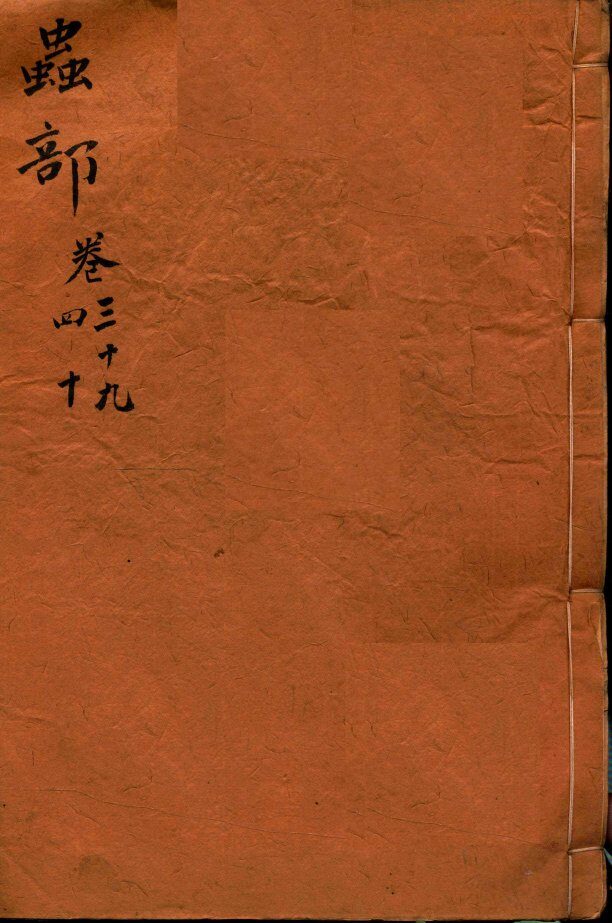 蟲部
卷三十九
四十